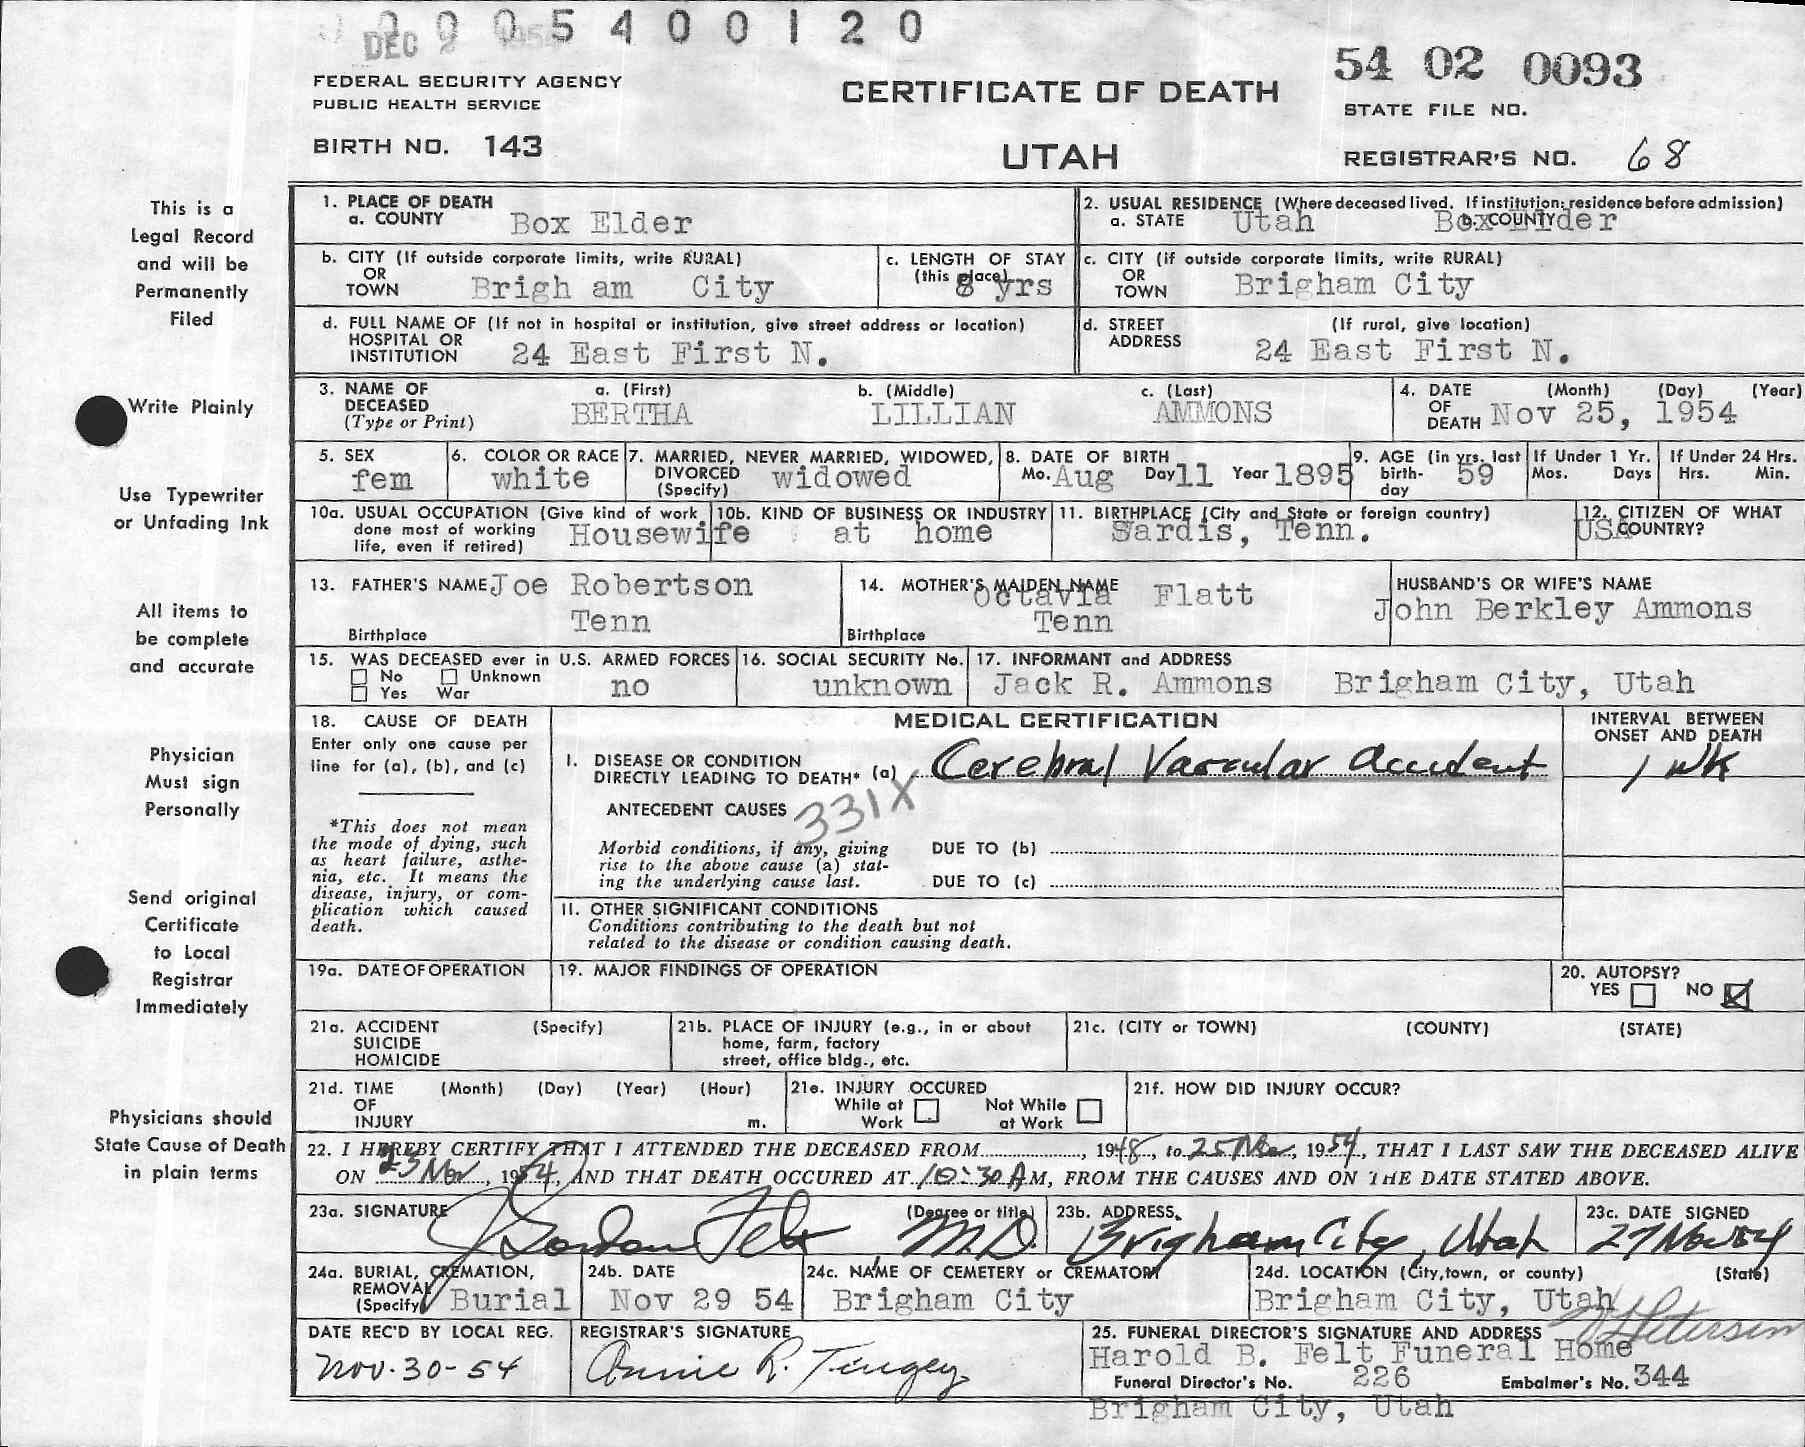 0 0 0 5 4 0 0 1 2 0
DEC 2 1954
54 02 0093
FEDERAL SECURITY AGENCY
PUBLIC HEALTH SERVICE
CERTIFICATE OF DEATH
STATE FILE NO.
BIRTH NO. 143
UTAH
REGISTRAR'S NO. 68
This is a
Legal Record
and will be
Permanently
Filed
Write Plainly
Use Typewriter
or Unfading Ink
All items to
be complete
and accurate
Physician
Must sign
Personally
Send original
Certificate
to Local
Registrar
Immediately
Physicians should
State Cause of Death
in plain terms
1. PLACE OF DEATH
a. COUNTY Box Elder
2. USUAL RESIDENCE (Where deceased lived. If institution: residence before admission)
a. STATE Utah b. COUNTY Box Elder
b. CITY (If outside corporate limits, write RURAL)
OR
TOWN Brigh am City
c. LENGTH OF STAY
(this place) 8 yrs
c. CITY (if outside corporate limits, write RURAL)
OR
TOWN Brigham City
d. FULL NAME OF (If not in hospital or institution, give street address or location)
HOSPITAL OR
INSTITUTION 24 East First N.
d. STREET (If rural, give location)
ADDRESS 24 East First N.
3. NAME OF DECEASED (Type or Print)
a. (First) b. (Middle) c. (Last)
BERTHA LILLIAN AMMONS
4. DATE OF DEATH (Month) (Day) (Year)
Nov 25, 1954
5. SEX
fem
6. COLOR OR RACE
white
7. MARRIED, NEVER MARRIED, WIDOWED,
DIVORCED (Specify) widowed
8. DATE OF BIRTH
Mo. Aug Day 11 Year 1895
9. AGE (in yrs. last birth-day 59
If Under 1 Yr.
Mos. Days
If Under 24 Hrs.
Hrs. Min.
10a. USUAL OCCUPATION (Give kind of work
done most of working
life, even if retired) Housewife
10b. KIND OF BUSINESS OR INDUSTRY
at home
11. BIRTHPLACE (City and State or foreign country)
Sardis, Tenn.
12. CITIZEN OF WHAT
COUNTRY? USA
13. FATHER'S NAME Joe Robertson
Birthplace Tenn
14. MOTHER'S MAIDEN NAME
Octavia Flatt
Birthplace Tenn
HUSBAND'S OR WIFE'S NAME
John Berkley Ammons
15. WAS DECEASED ever in U.S. ARMED FORCES
No Unknown
Yes War no
16. SOCIAL SECURITY No.
unknown
17. INFORMANT and ADDRESS
Jack R. Ammons Brigham City, Utah
18. CAUSE OF DEATH
Enter only one cause per
line for (a), (b), and (c)
*This does not mean
the mode of dying, such
as heart failure, asthe-
nia, etc. It means the
disease, injury, or com-
plication which caused
death.
MEDICAL CERTIFICATION
INTERVAL BETWEEN
ONSET AND DEATH
I. DISEASE OR CONDITION
DIRECTLY LEADING TO DEATH* (a) Cerebral Vascular Accident
1 Wk
ANTECEDENT CAUSES 331X
Morbid conditions, if any, giving
rise to the above cause (a) stat-
ing the underlying cause last.
DUE TO (b)
DUE TO (c)
II. OTHER SIGNIFICANT CONDITIONS
Conditions contributing to the death but not
related to the disease or condition causing death.
19a. DATE OF OPERATION
19. MAJOR FINDINGS OF OPERATION
20. AUTOPSY?
YES NO
21a. ACCIDENT (Specify)
SUICIDE
HOMICIDE
21b. PLACE OF INJURY (e.g., in or about
home, farm, factory
street, office bldg., etc.
21c. (CITY or TOWN) (COUNTY) (STATE)
21d. TIME (Month) (Day) (Year) (Hour)
OF
INJURY m.
21e. INJURY OCCURED
While at Work Not While at Work
21f. HOW DID INJURY OCCUR?
22. I HEREBY CERTIFY THAT I ATTENDED THE DECEASED FROM , 1948, to 25 Nov, 1954, THAT I LAST SAW THE DECEASED ALIVE
ON 23 Nov, 1954, AND THAT DEATH OCCURED AT 10:30 A M, FROM THE CAUSES AND ON THE DATE STATED ABOVE.
23a. SIGNATURE (Degree or title)
J Gordon Felt M.D.
23b. ADDRESS
Brigham City, Utah
23c. DATE SIGNED
27 Nov 54
24a. BURIAL, CREMATION,
REMOVAL
(Specify) Burial
24b. DATE
Nov 29 54
24c. NAME OF CEMETERY or CREMATORY
Brigham City
24d. LOCATION (City, town, or county) (State)
Brigham City, Utah
DATE REC'D BY LOCAL REG.
Nov. 30-54
REGISTRAR'S SIGNATURE
Annie R. Tingey
25. FUNERAL DIRECTOR'S SIGNATURE AND ADDRESS Petersen
Harold B. Felt Funeral Home
Funeral Director's No. 226 Embalmer's No. 344
Brigham City, Utah